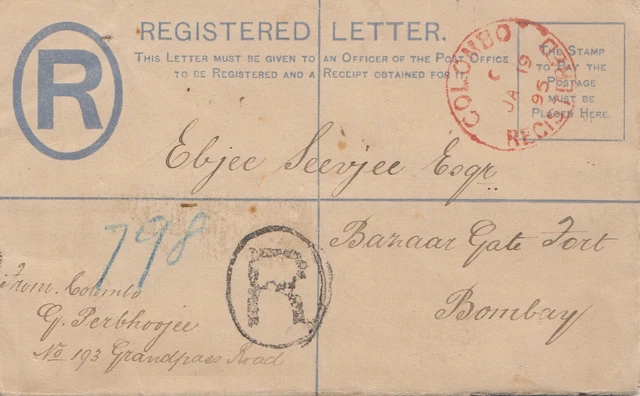 REGISTERED LETTER.
THIS LETTER MUST BE GIVEN TO AN OFFICER OF THE POST OFFICE
TO BE REGISTERED AND A RECEIPT OBTAINED FOR IT.
R
THE STAMP
TO PAY THE
POSTAGE
MUST BE
PLACED HERE.
COLOMBO
C
JA 19
95
REGISTERED
Ebjee Seevjee Esqr
Bazaar Gate Fort
Bombay
798
R
From. Colombo
G. Perbhoojee
No 193 Grandpass Road